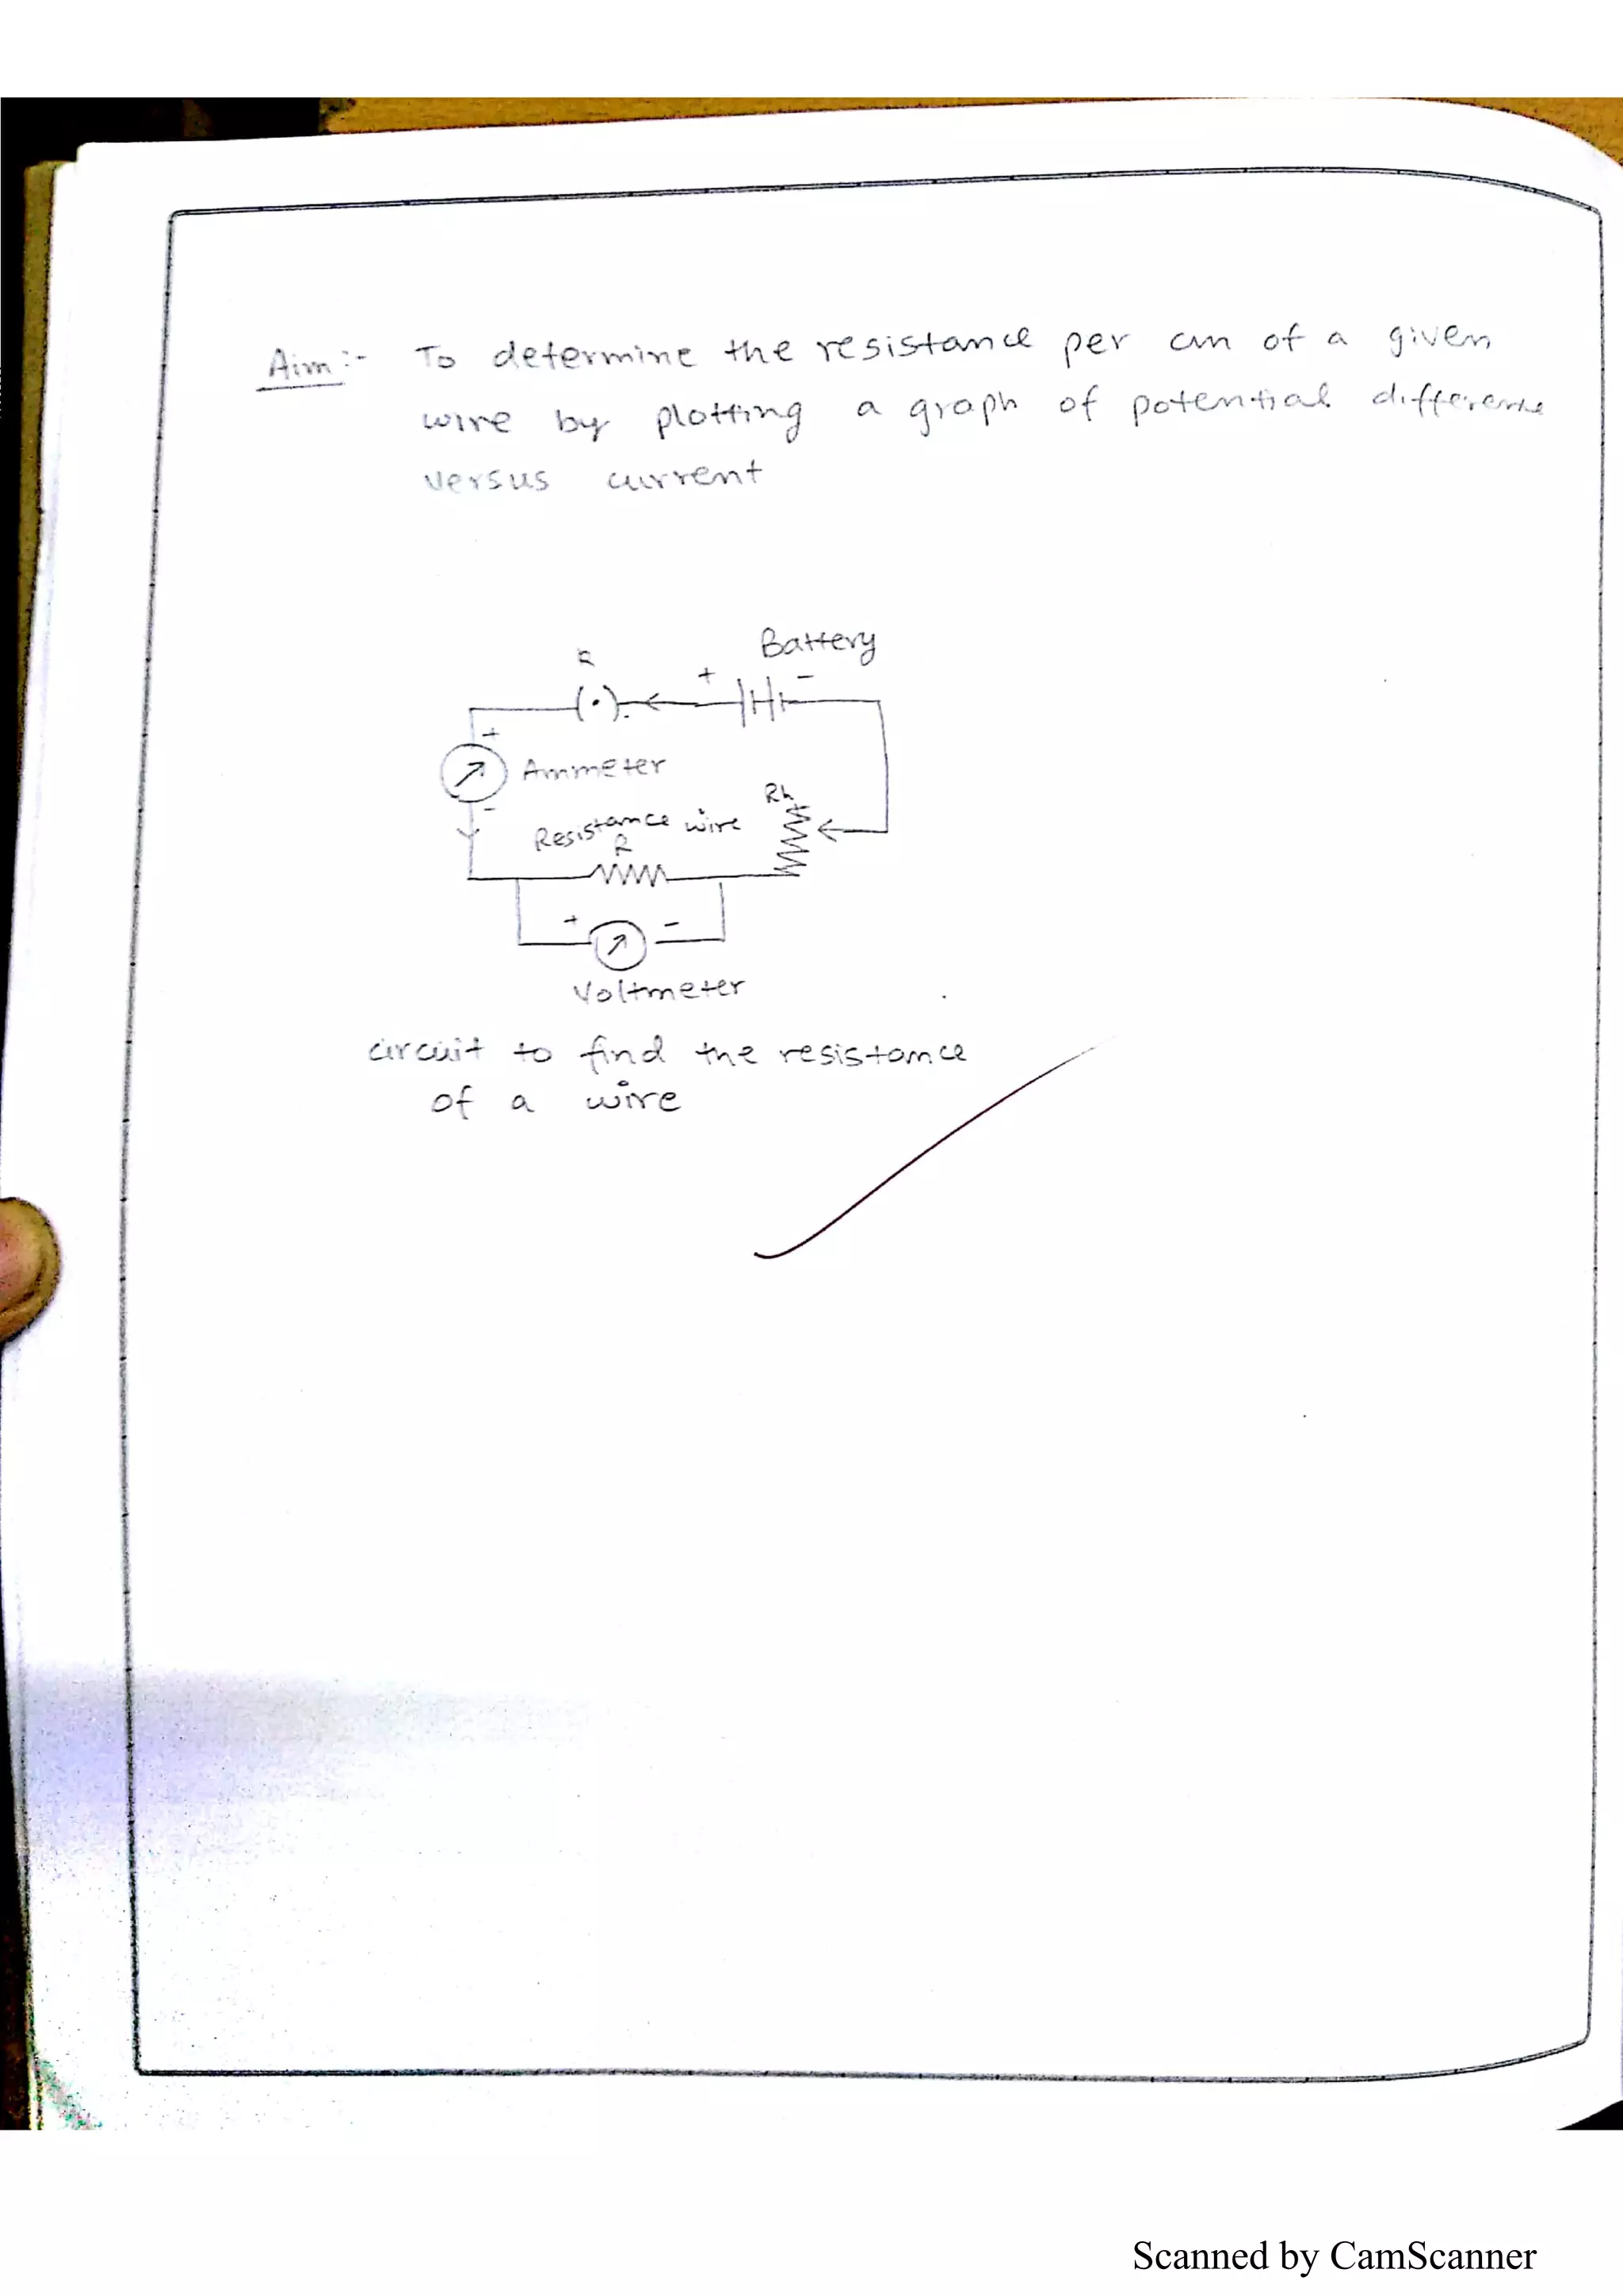 Aim :- To determine the resistance per cm of a given
wire by plotting a graph of potential difference
versus current
Battery
+ -
+
Ammeter
-
Rh
Resistance wire
R
+ -
Voltmeter
circuit to find the resistance
of a wire
Scanned by CamScanner